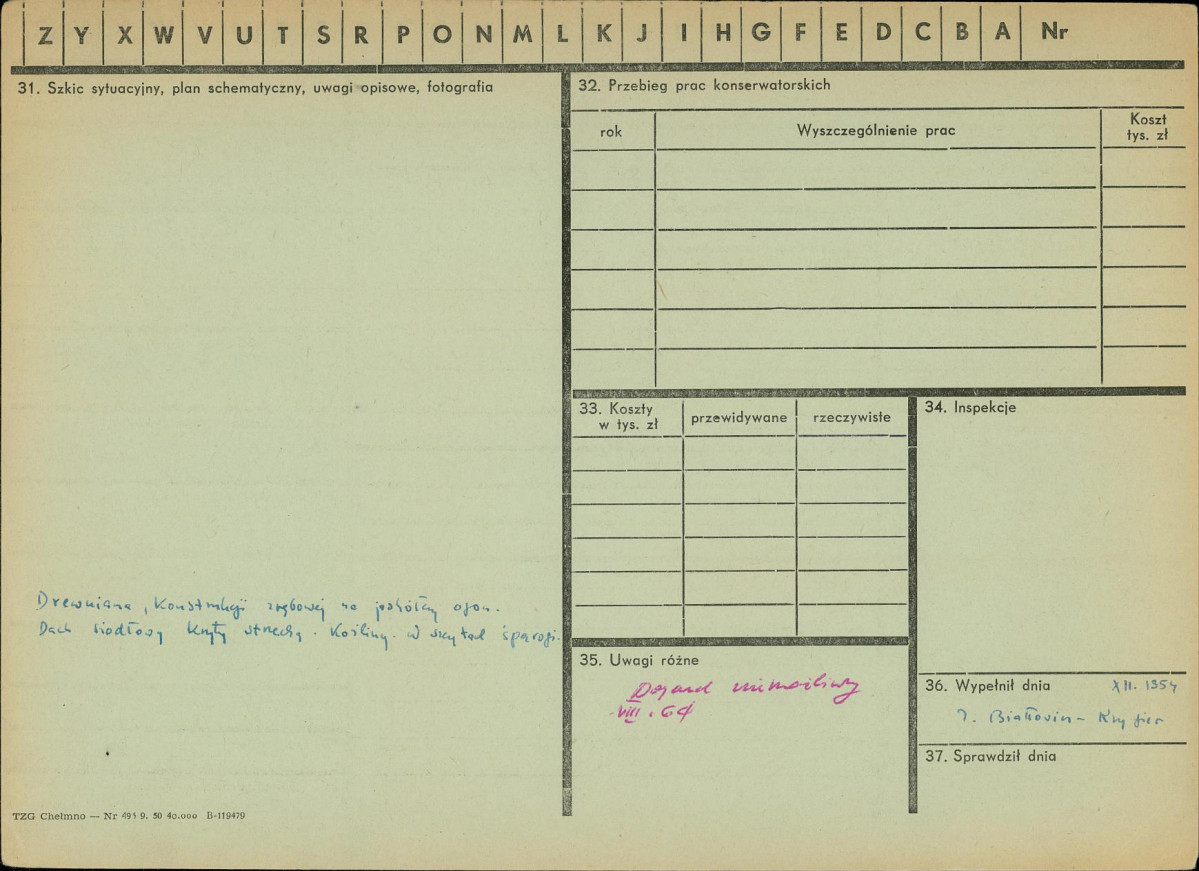 Z Y X W V U T S R P O N M L K J I H G F E D C B A Nr
31. Szkic sytuacyjny, plan schematyczny, uwagi opisowe, fotografia
Drewniana, konstrukcji zrębowej na
Dach siodłowy kryty strzechą. W
TZG Chełmno — Nr 495 9. 50 40.000 B-119479
32. Przebieg prac konserwatorskich
rok
Wyszczególnienie prac
Koszt
tys. zł
33. Koszty
w tys. zł
przewidywane
rzeczywiste
34. Inspekcje
35. Uwagi różne
Dojazd niemożliwy
VIII. 64
36. Wypełnił dnia XII. 1954
37. Sprawdził dnia